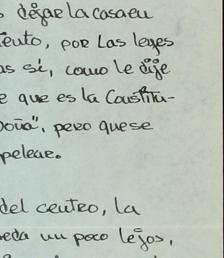 s dejar la casa en
iento, por las leyes
as sí, como le dije
e que es la Constitu-
oña", pero que se
pelear.
del centro, la
eda un poco lejos,